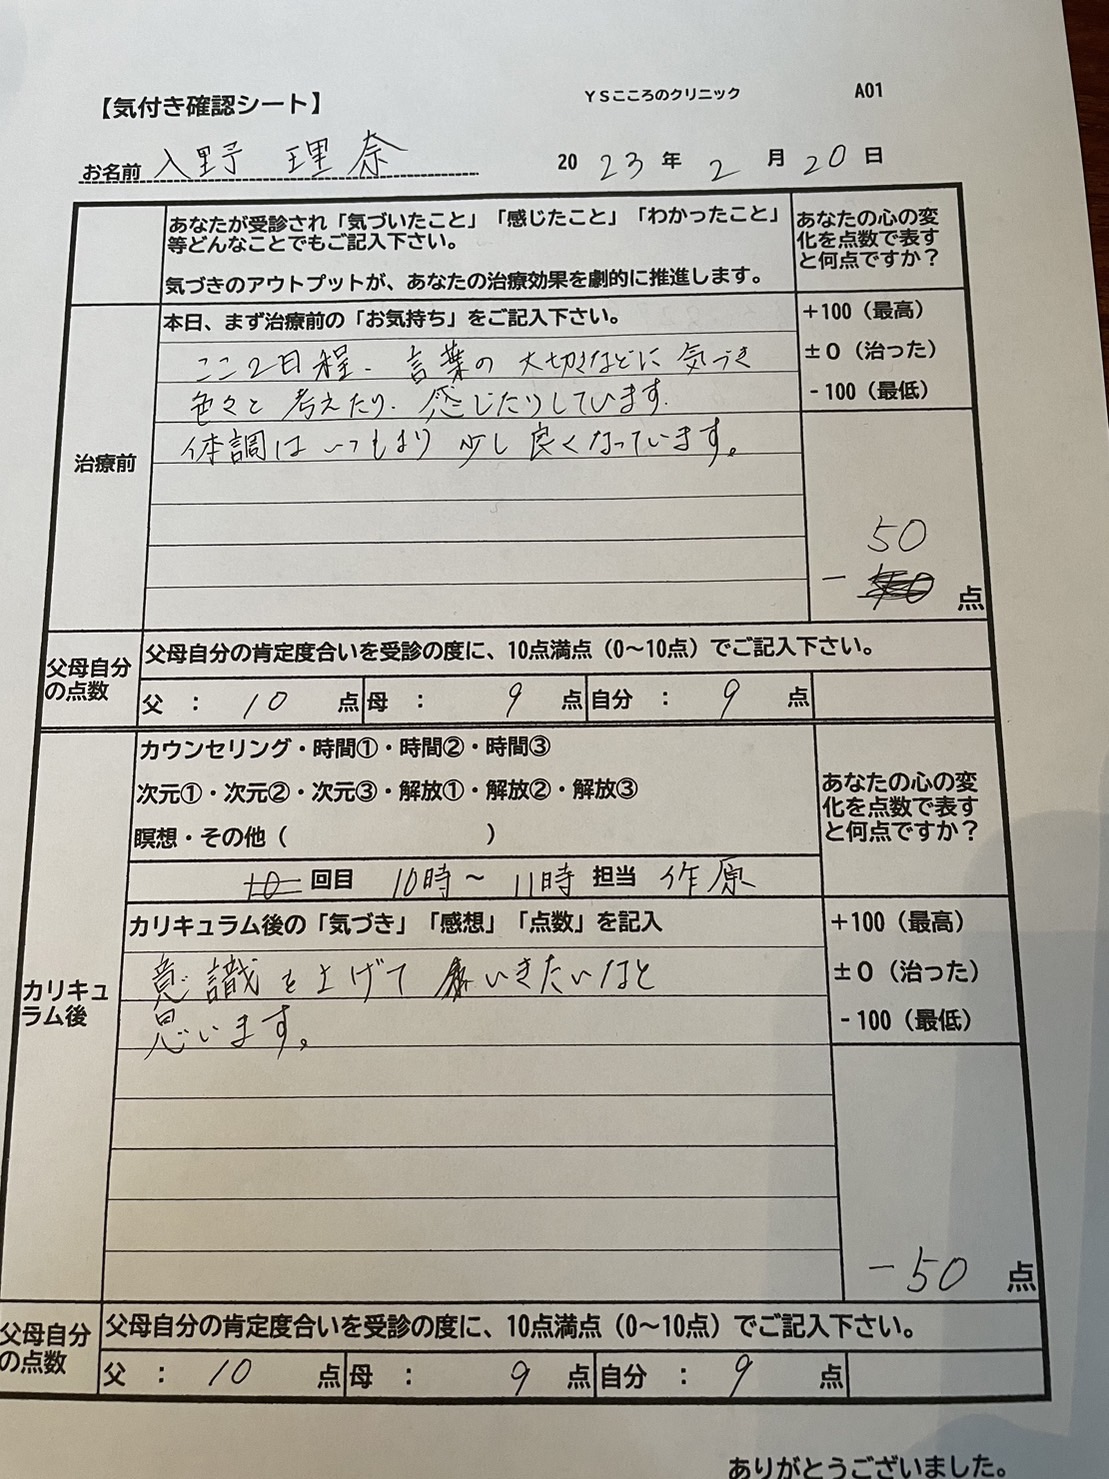 【気付き確認シート】
YSこころのクリニック
A01
お名前 入野 理奈
2023年2月20日
あなたが受診され「気づいたこと」「感じたこと」「わかったこと」
等どんなことでもご記入下さい。
気づきのアウトプットが、あなたの治療効果を劇的に推進します。
あなたの心の変
化を点数で表す
と何点ですか？
治療前
本日、まず治療前の「お気持ち」をご記入下さい。
ここ2日程、言葉の大切さなどに気づき
色々と考えたり、感じたりしています。
体調はいつもより少し良くなっています。
+100（最高）
±0（治った）
-100（最低）
50
－ 点
父母自分
の点数
父母自分の肯定度合いを受診の度に、10点満点（0〜10点）でご記入下さい。
父：10点 母：9点 自分：9点
カリキュ
ラム後
カウンセリング・時間①・時間②・時間③
次元①・次元②・次元③・解放①・解放②・解放③
瞑想・その他（ ）
10回目 10時〜11時 担当 作原
あなたの心の変
化を点数で表す
と何点ですか？
カリキュラム後の「気づき」「感想」「点数」を記入
意識を上げていきたいなと
思います。
+100（最高）
±0（治った）
-100（最低）
－50点
父母自分
の点数
父母自分の肯定度合いを受診の度に、10点満点（0〜10点）でご記入下さい。
父：10点 母：9点 自分：9点
ありがとうございました。